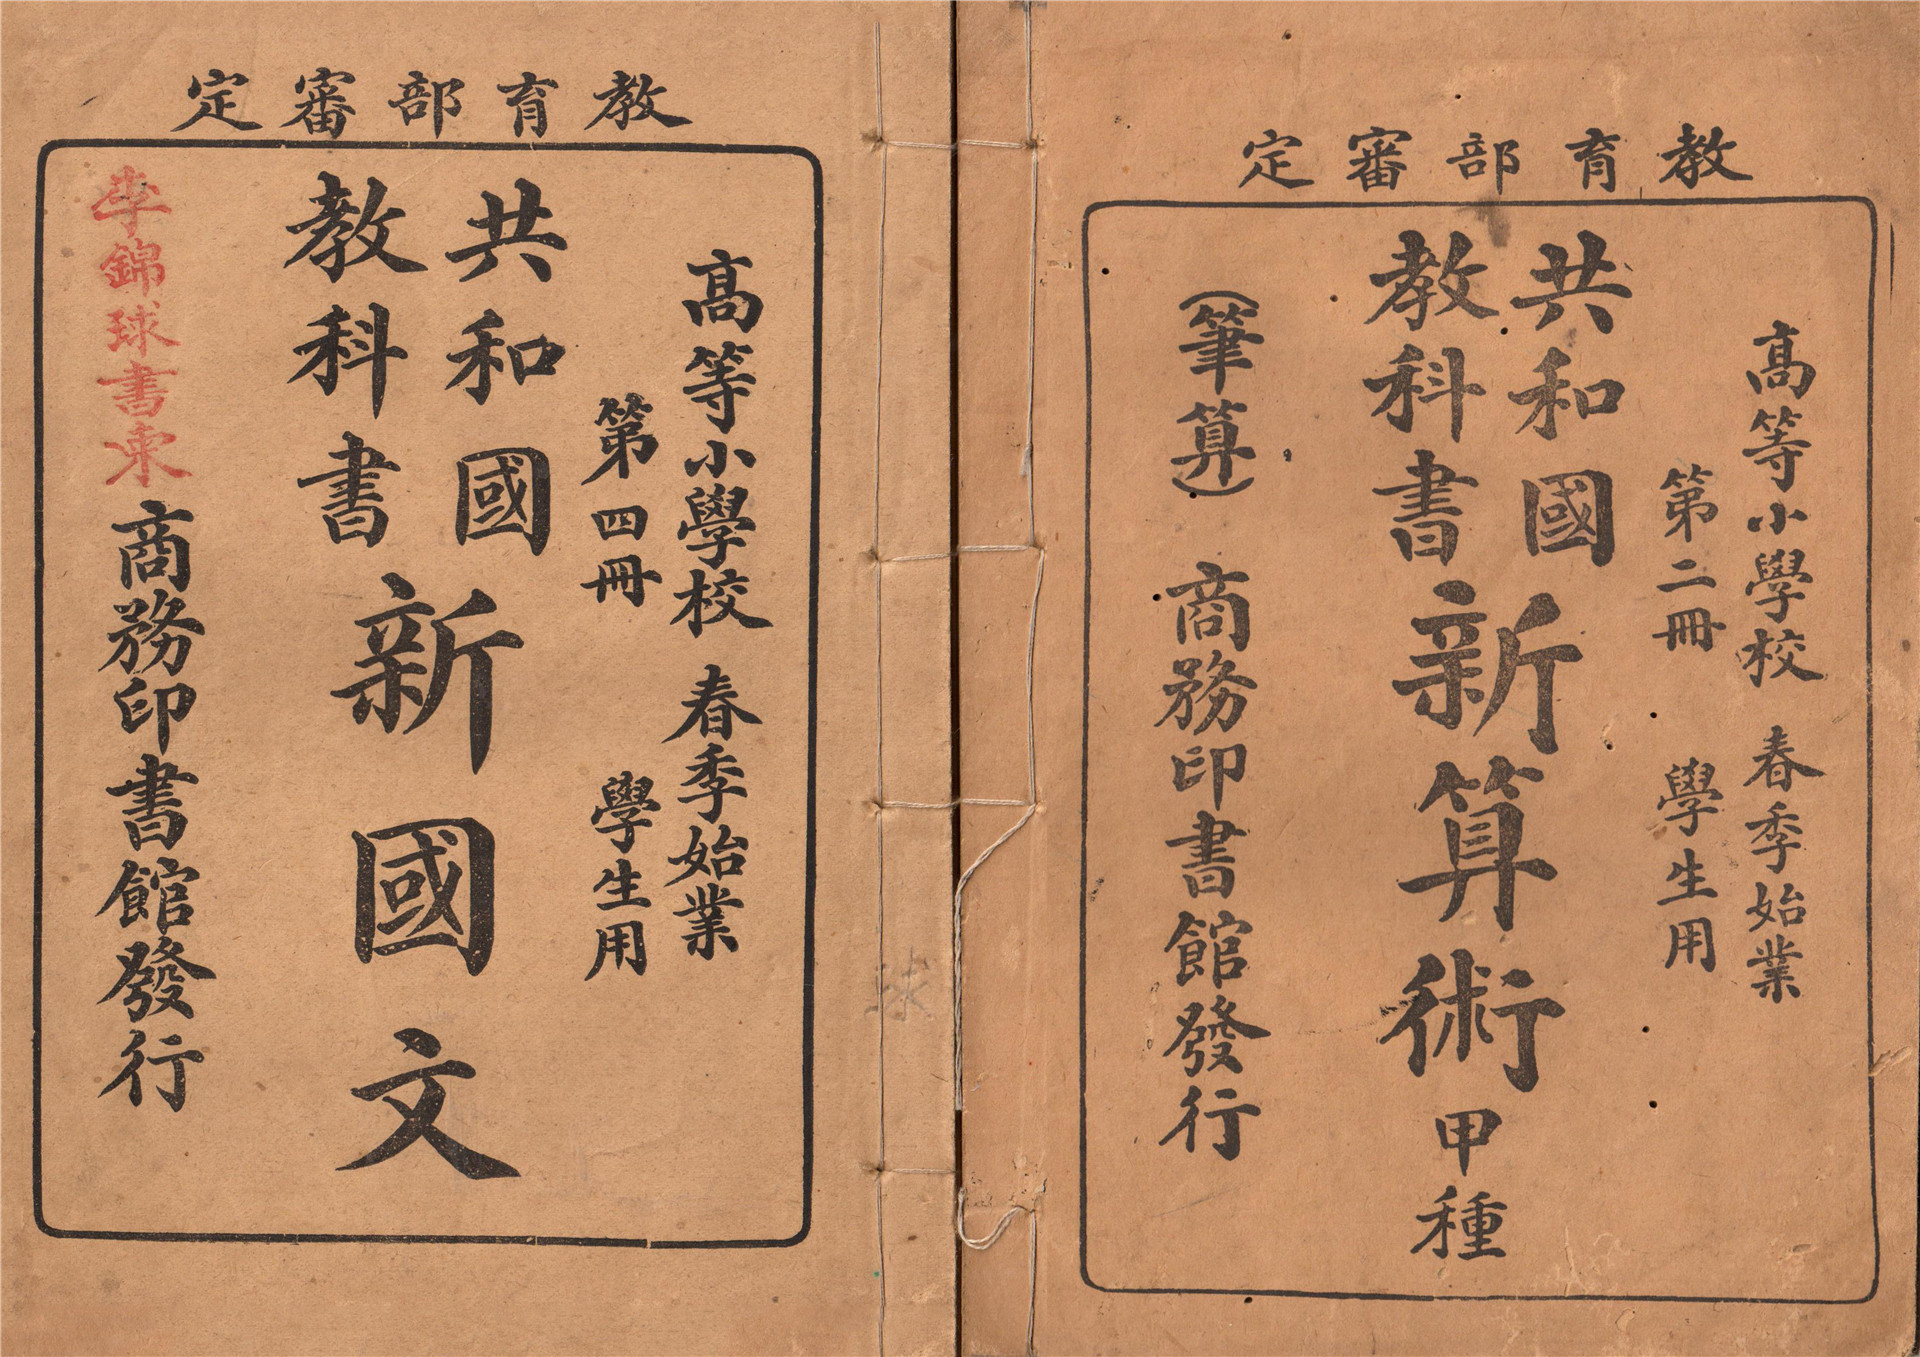 教育部審定
高等小學校 春季始業
第四冊 學生用
共和國
教科書
新國文
李錦球書
商務印書館發行
教育部審定
高等小學校 春季始業
第二冊 學生用
共和國
教科書
新算術 甲種
(筆算) 商務印書館發行